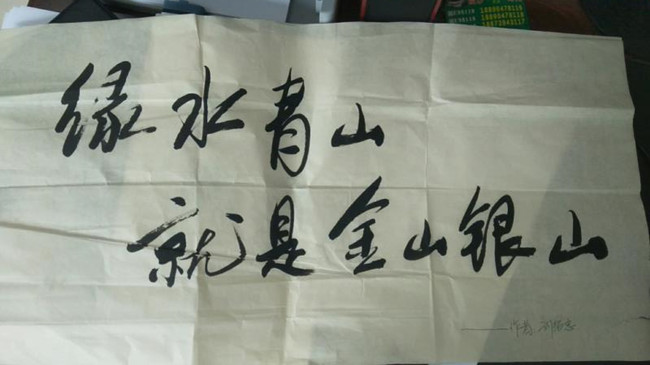 缘水青山
就是金山银山
——作者